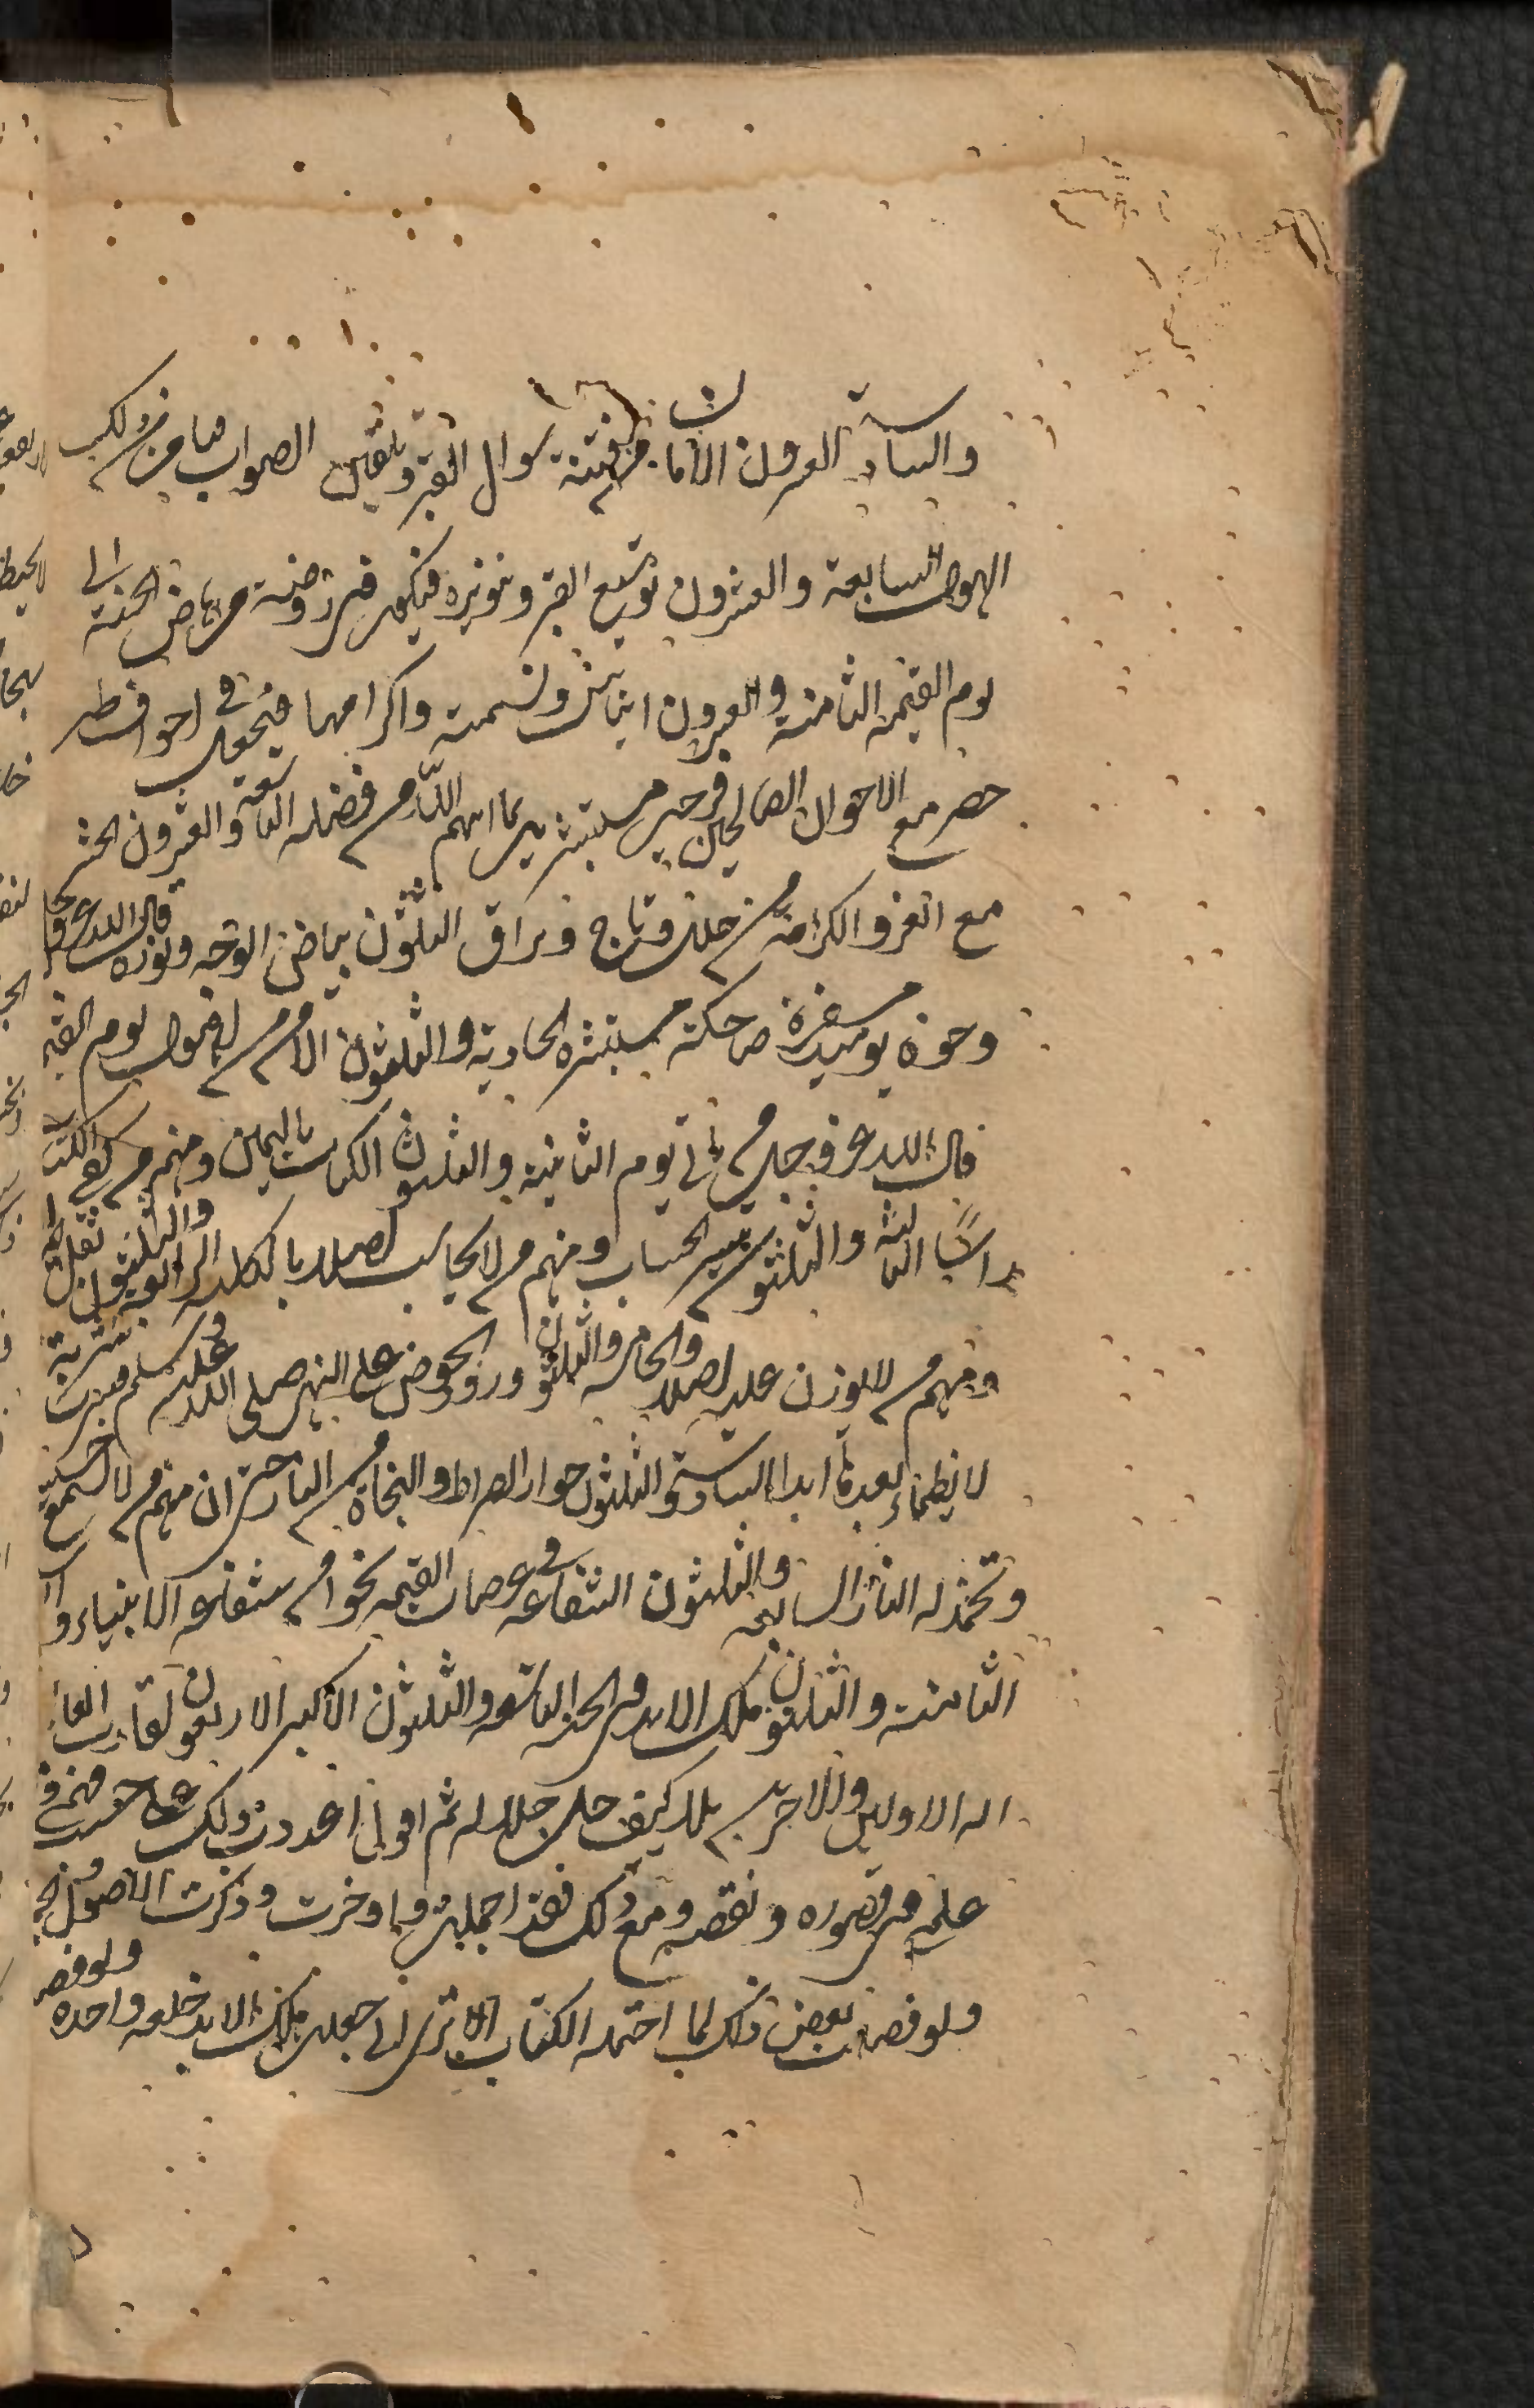 والسادسة العشرون الأمان من فتنة سوال القبر وتلقين الصواب فيامن من ذلك
الهول السابعة والعشرون توسع القبر وتنويره فيكون في روضة من رياض الجنة الى
يوم القيمة الثامنة والعشرون ايناس ونسمته واكرامها فيجعل في اجواف طير
خضر مع الاخوان الصالحين فرحين مستبشرين بما اتيهم الله من فضله التاسعة والعشرون الحشر
مع العز والكرامة من حلل وتاج وبراق الثلثون بياض الوجه ونوره قال الله عز وجل
وجوه يوميذ مسفرة ضاحكة مستبشرة الحادية والثلثون الامن من اهوال يوم القيمة
قال الله عز وجل من ياتي يوم الثانية والثلثون الكتاب باليمين ومنهم من كفى الكتاب
راسًا الثالثة والثلثون تيسير الحساب ومنهم من لا يحاسب اصلا بالكلية الرابعة والثلثون ثقل
ومنهم من لا يوزن عليه اصلا والخامسة والثلثون ورود الحوض على النبي صلى الله عليه وسلم فيشرب شربة
لا يظماء بعدها ابدا السادسة والثلثون جواز الصراط والنجاة من النار حتى ان منهم من لا يسمع حسيسه
وتخمد له النار السابعة والثلثون الشفاعة في عرصات القيمة نحوا من شفاعة الانبياء وا
الثامنة والثلثون ملك الابد في الجنة التاسعة والثلثون الاكبر الاربعون لقاء رب العا
اله الاولين والاخرين بلا كيف جل جلاله ثم اقول اعددت ذلك على حسب فهمي و
علمي في قصوره ونقصه ومع ذلك فقد اجملت واوخرت وذكرت الاصول و
ولو فصلت بعض ذلك لما احتمله الكتاب الا ترى اني جعلت ملك الابد خلعة واحدة ولو فصلـ